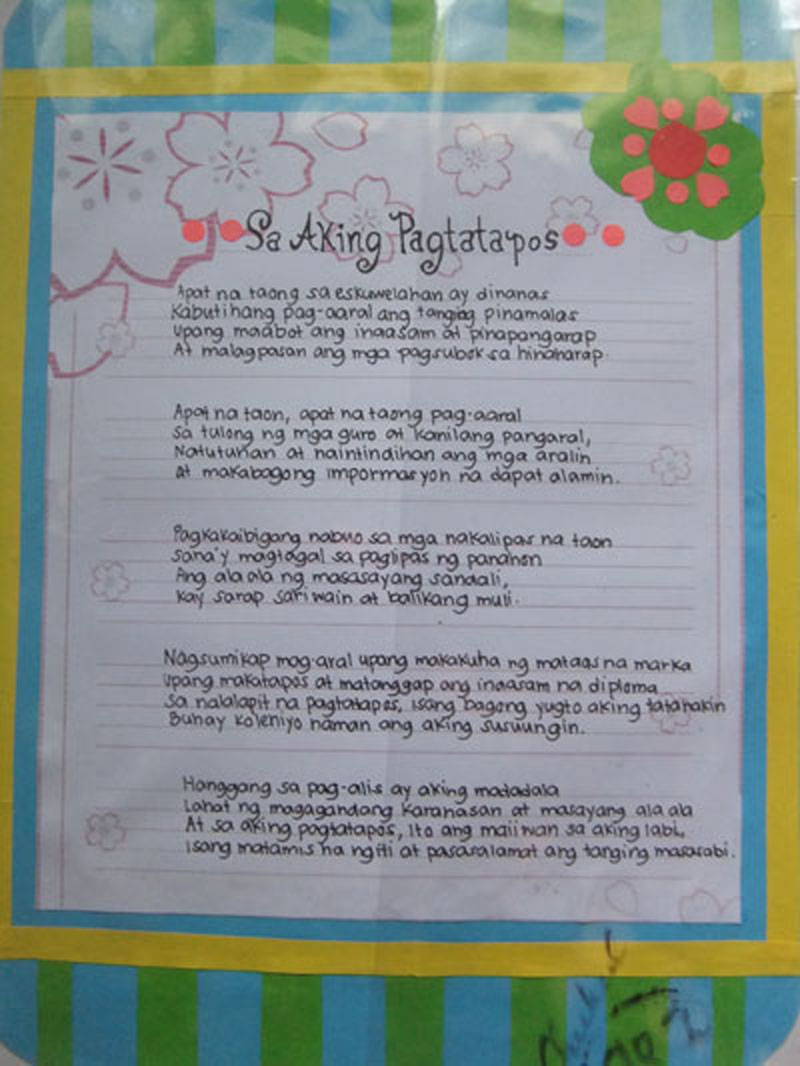 Sa Aking Pagtatapos
Apat na taong sa eskuwelahan ay dinanas
Kabutihang pag-aaral ang tanging pinamalas
Upang maabot ang inaasam at pinapangarap
At malagpasan ang mga pagsubok sa hinaharap.
Apat na taon, apat na taong pag-aaral
Sa tulong ng mga guro at kanilang pangaral,
Natutunan at naintindihan ang mga aralin
at makabagong impormasyon na dapat alamin.
Pagkakaibigang nabuo sa mga nakalipas na taon
sana'y magtagal sa paglipas ng panahon
Ang ala ala ng masasayang sandali,
kay sarap sariwain at balikang muli.
Nagsumikap mag-aral upang makakuha ng mataas na marka
upang makatapos at matanggap ang inaasam na diploma
Sa nalalapit na pagtatapos, isang bagong yugto aking tatahakin
Buhay koleniyo naman ang aking susuungin.
Hanggang sa pag-alis ay aking madadala
Lahat ng magagandang karanasan at masayang ala ala
At sa aking pagtatapos, Ito ang maiiwan sa aking labi,
Isang matamis na ngiti at pasasalamat ang tanging masasabi.